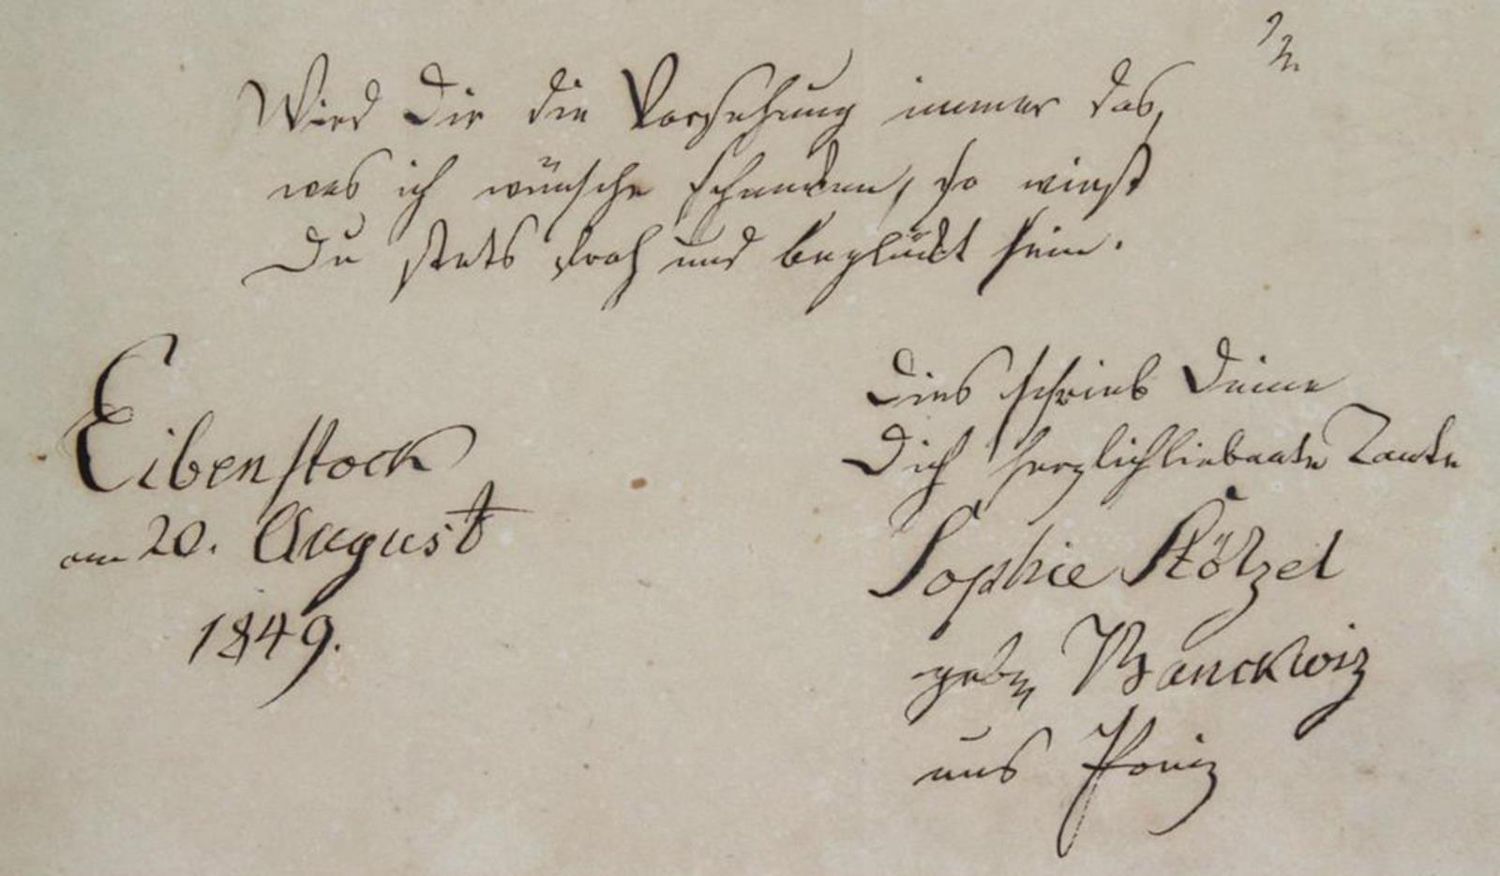 Wird Dir die Vorsehung immer das,
was ich wünsche schenken, so wirst
Du stets froh und beglückt sein.
Eibenstock
am 20. August
1849.
Dies schrieb Deine
Dich herzlichliebende Tante
Sophie Stötzel
geb. Banckwiz
aus Poniz